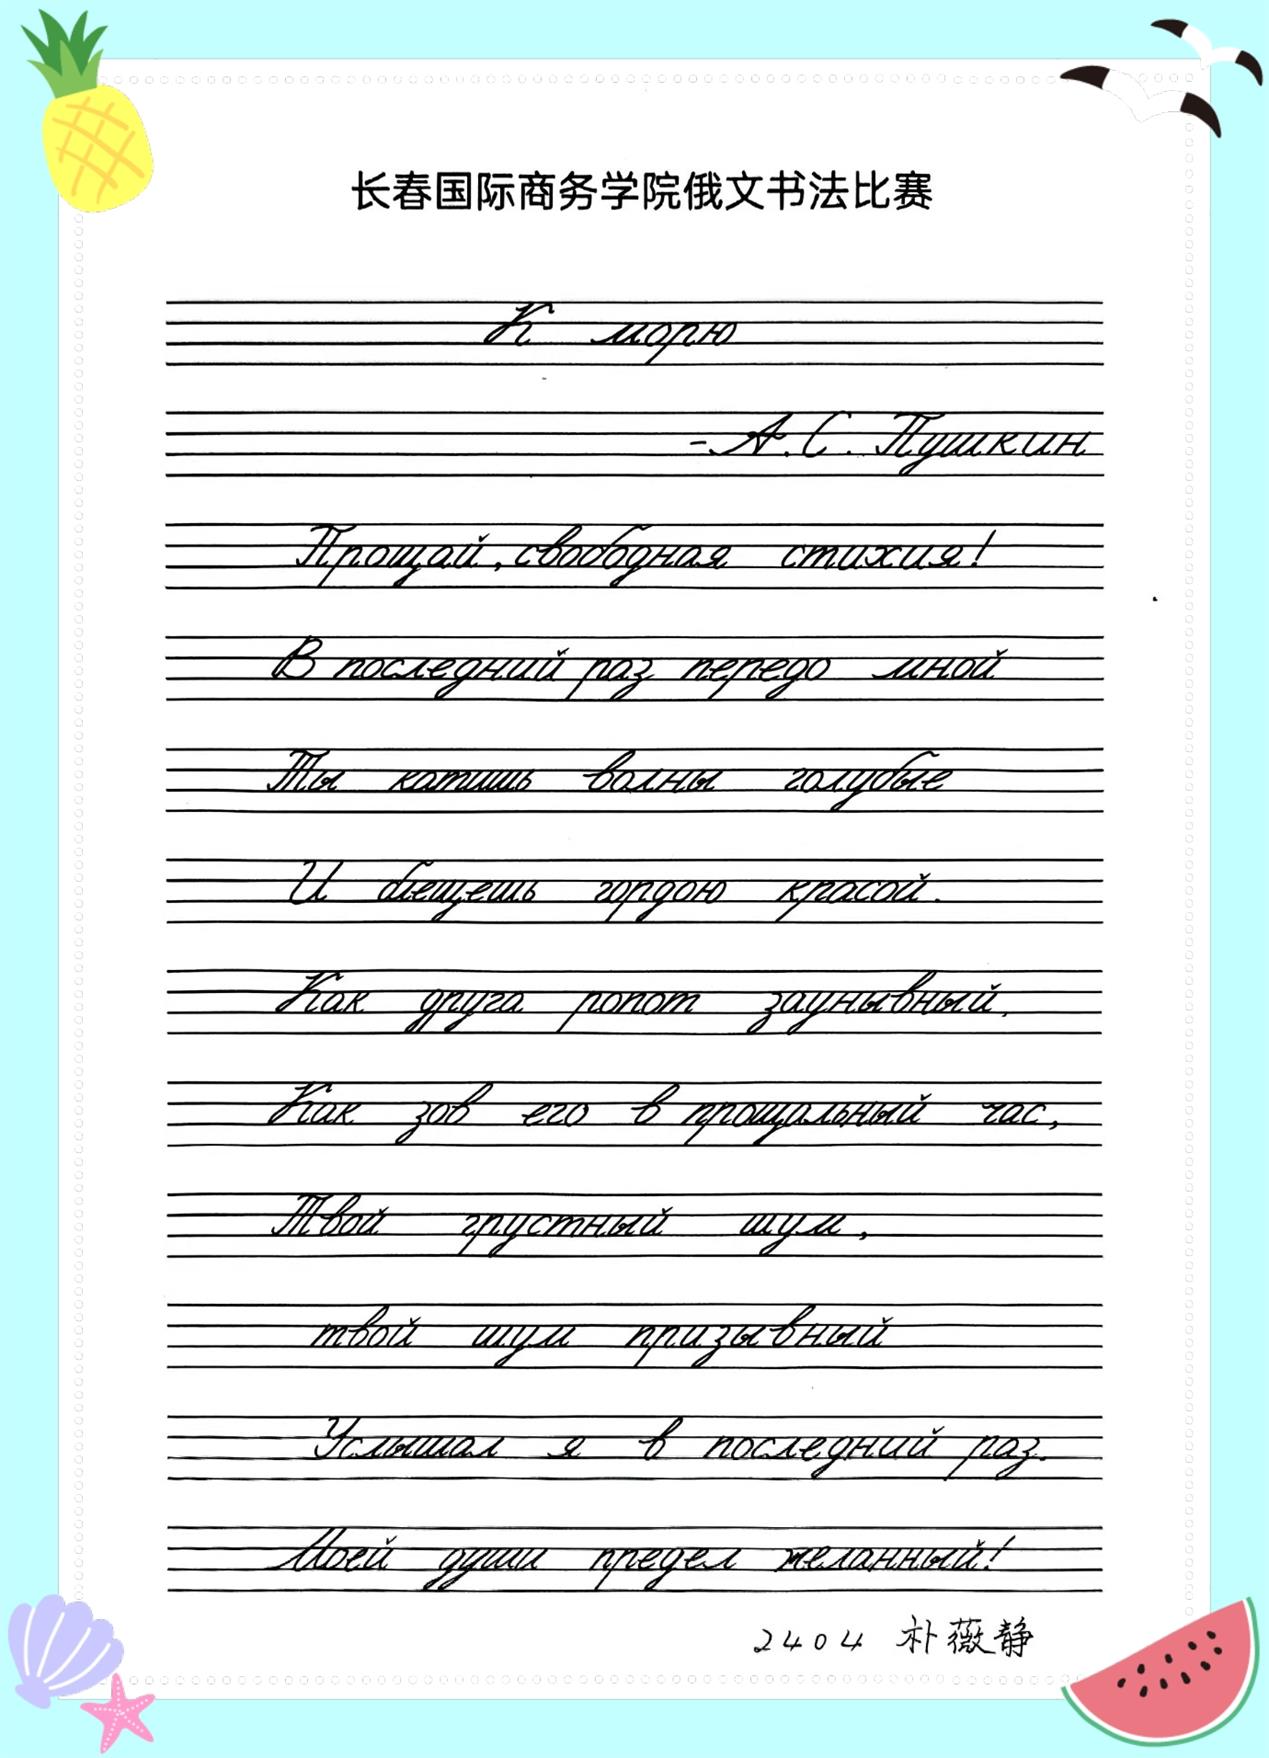 长春国际商务学院俄文书法比赛
К морю
-А.С. Пушкин
Прощай, свободная стихия!
В последний раз передо мной
Ты катишь волны голубые
И блещешь гордою красой.
Как друга ропот заунывный,
Как зов его в прощальный час,
Твой грустный шум,
твой шум призывный
Услышал я в последний раз.
Моей души предел желанный!
2404 朴薇静